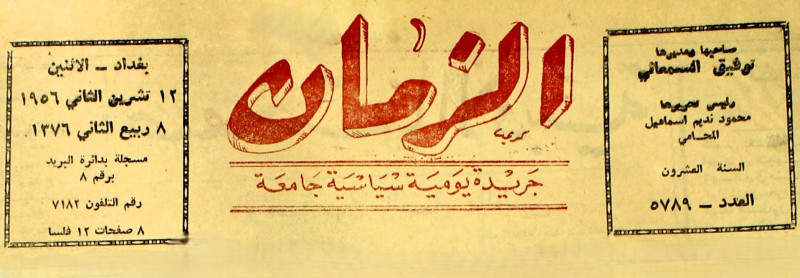 صاحبها ومديرها
توفيق السمعاني
رئيس تحريرها
محمود نديم اسماعيل
المحامي
السنة العشرون
العدد – ٥٧٨٩
الزمان
جريدة يومية سياسية جامعة
بغداد – الاثنين
١٢ تشرين الثاني ١٩٥٦
٨ ربيع الثاني ١٣٧٦
مسجلة بدائرة البريد
برقم ٨
رقم التلفون ٧١٨٢
٨ صفحات ١٢ فلسا